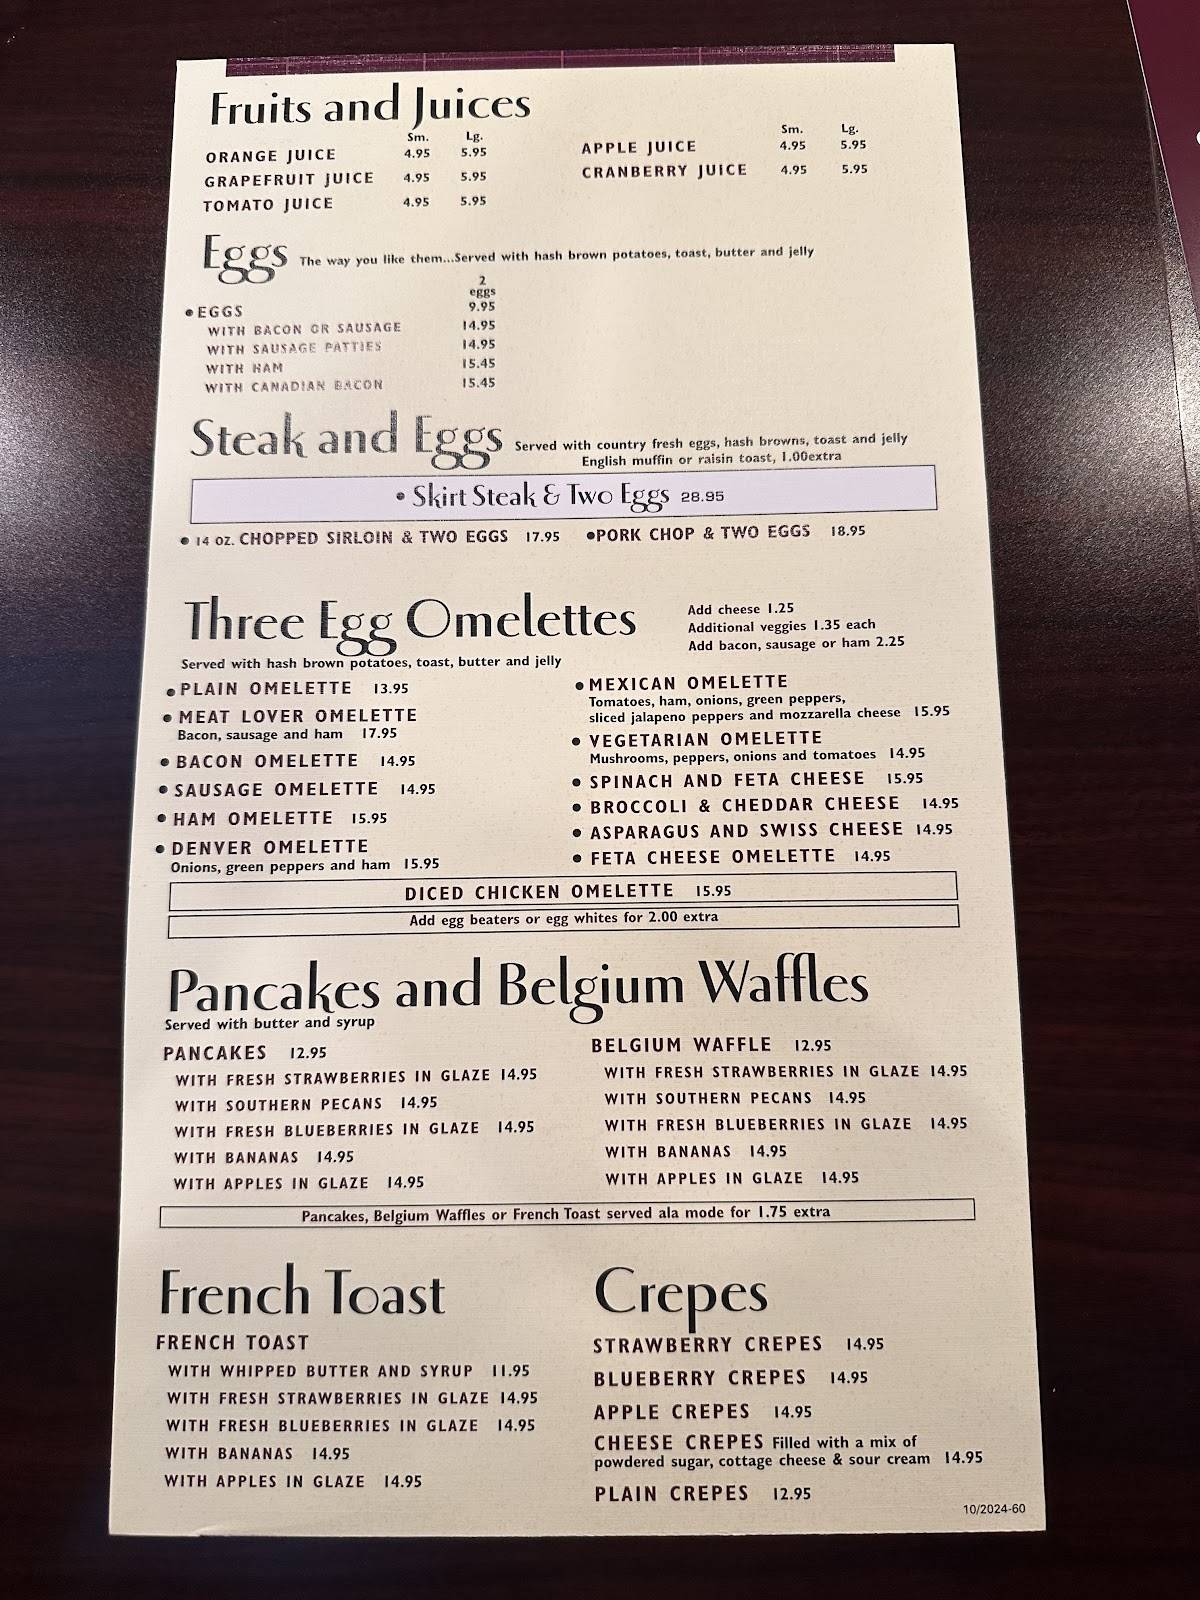 Fruits and Juices
Sm. Lg.
ORANGE JUICE 4.95 5.95
GRAPEFRUIT JUICE 4.95 5.95
TOMATO JUICE 4.95 5.95
Sm. Lg.
APPLE JUICE 4.95 5.95
CRANBERRY JUICE 4.95 5.95
Eggs The way you like them...Served with hash brown potatoes, toast, butter and jelly
2
eggs
• EGGS 9.95
WITH BACON OR SAUSAGE 14.95
WITH SAUSAGE PATTIES 14.95
WITH HAM 15.45
WITH CANADIAN BACON 15.45
Steak and Eggs Served with country fresh eggs, hash browns, toast and jelly
English muffin or raisin toast, 1.00extra
• Skirt Steak & Two Eggs 28.95
• 14 oz. CHOPPED SIRLOIN & TWO EGGS 17.95 •PORK CHOP & TWO EGGS 18.95
Three Egg Omelettes
Served with hash brown potatoes, toast, butter and jelly
Add cheese 1.25
Additional veggies 1.35 each
Add bacon, sausage or ham 2.25
• PLAIN OMELETTE 13.95
• MEAT LOVER OMELETTE
Bacon, sausage and ham 17.95
• BACON OMELETTE 14.95
• SAUSAGE OMELETTE 14.95
• HAM OMELETTE 15.95
• DENVER OMELETTE
Onions, green peppers and ham 15.95
• MEXICAN OMELETTE
Tomatoes, ham, onions, green peppers,
sliced jalapeno peppers and mozzarella cheese 15.95
• VEGETARIAN OMELETTE
Mushrooms, peppers, onions and tomatoes 14.95
• SPINACH AND FETA CHEESE 15.95
• BROCCOLI & CHEDDAR CHEESE 14.95
• ASPARAGUS AND SWISS CHEESE 14.95
• FETA CHEESE OMELETTE 14.95
DICED CHICKEN OMELETTE 15.95
Add egg beaters or egg whites for 2.00 extra
Pancakes and Belgium Waffles
Served with butter and syrup
PANCAKES 12.95
WITH FRESH STRAWBERRIES IN GLAZE 14.95
WITH SOUTHERN PECANS 14.95
WITH FRESH BLUEBERRIES IN GLAZE 14.95
WITH BANANAS 14.95
WITH APPLES IN GLAZE 14.95
BELGIUM WAFFLE 12.95
WITH FRESH STRAWBERRIES IN GLAZE 14.95
WITH SOUTHERN PECANS 14.95
WITH FRESH BLUEBERRIES IN GLAZE 14.95
WITH BANANAS 14.95
WITH APPLES IN GLAZE 14.95
Pancakes, Belgium Waffles or French Toast served ala mode for 1.75 extra
French Toast
FRENCH TOAST
WITH WHIPPED BUTTER AND SYRUP 11.95
WITH FRESH STRAWBERRIES IN GLAZE 14.95
WITH FRESH BLUEBERRIES IN GLAZE 14.95
WITH BANANAS 14.95
WITH APPLES IN GLAZE 14.95
Crepes
STRAWBERRY CREPES 14.95
BLUEBERRY CREPES 14.95
APPLE CREPES 14.95
CHEESE CREPES Filled with a mix of
powdered sugar, cottage cheese & sour cream 14.95
PLAIN CREPES 12.95
10/2024-60